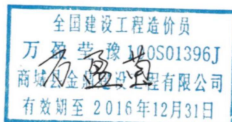 全国建设工程造价员
万盈莹豫110S01396J
商城县金 建设工程有限公司
有效期至2016年12月31日